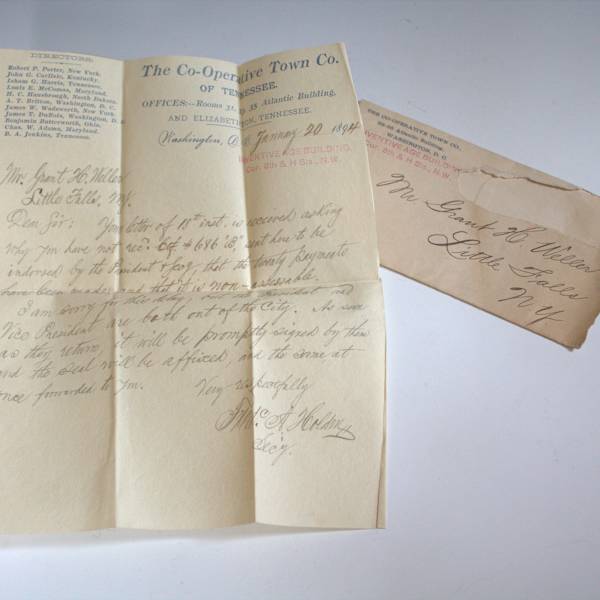 DIRECTORS.
Robert P. Porter, New York.
John G. Carlisle, Kentucky.
Isham G. Harris, Tennessee.
Louis E. McComas, Maryland.
H. C. Hansbrough, North Dakota.
A. T. Britton, Washington, D. C.
James W. Wadsworth, New York.
James T. DuBois, Washington, D. C.
Benjamin Butterworth, Ohio.
Chas. W. Adams, Maryland.
B. A. Jenkins, Tennessee.
The Co-Operative Town Co.
OF TENNESSEE.
OFFICES:--Rooms 31, 35 Atlantic Building,
AND ELIZABETHTON, TENNESSEE.
Washington, D. January 20, 1894
INVENTIVE AGE BUILDING,
Cor. 8th & H Sts., N.W.
Mr. Grant H. Weller
Little Falls, NY.
Dear Sir: Your letter of 18th inst. is received asking
why you have not rec'd. Ctf # 686 "B," sent here to be
endorsed by the President & Secy, that the twenty payments
have been made, and that it is non-assessable.
I am sorry for this delay, but the President and
Vice President are both out of the City. As soon
as they return, it will be promptly signed by them
and the seal will be affixed, and the same at
once forwarded to you.
Very respectfully
A. Holden
Sec'y.
THE CO-OPERATIVE TOWN CO.
Atlantic Building
WASHINGTON, D. C.
INVENTIVE AGE BUILDING,
Cor. 8th & H Sts., N.W.
Mr Grant H. Weller
Little Falls
NY